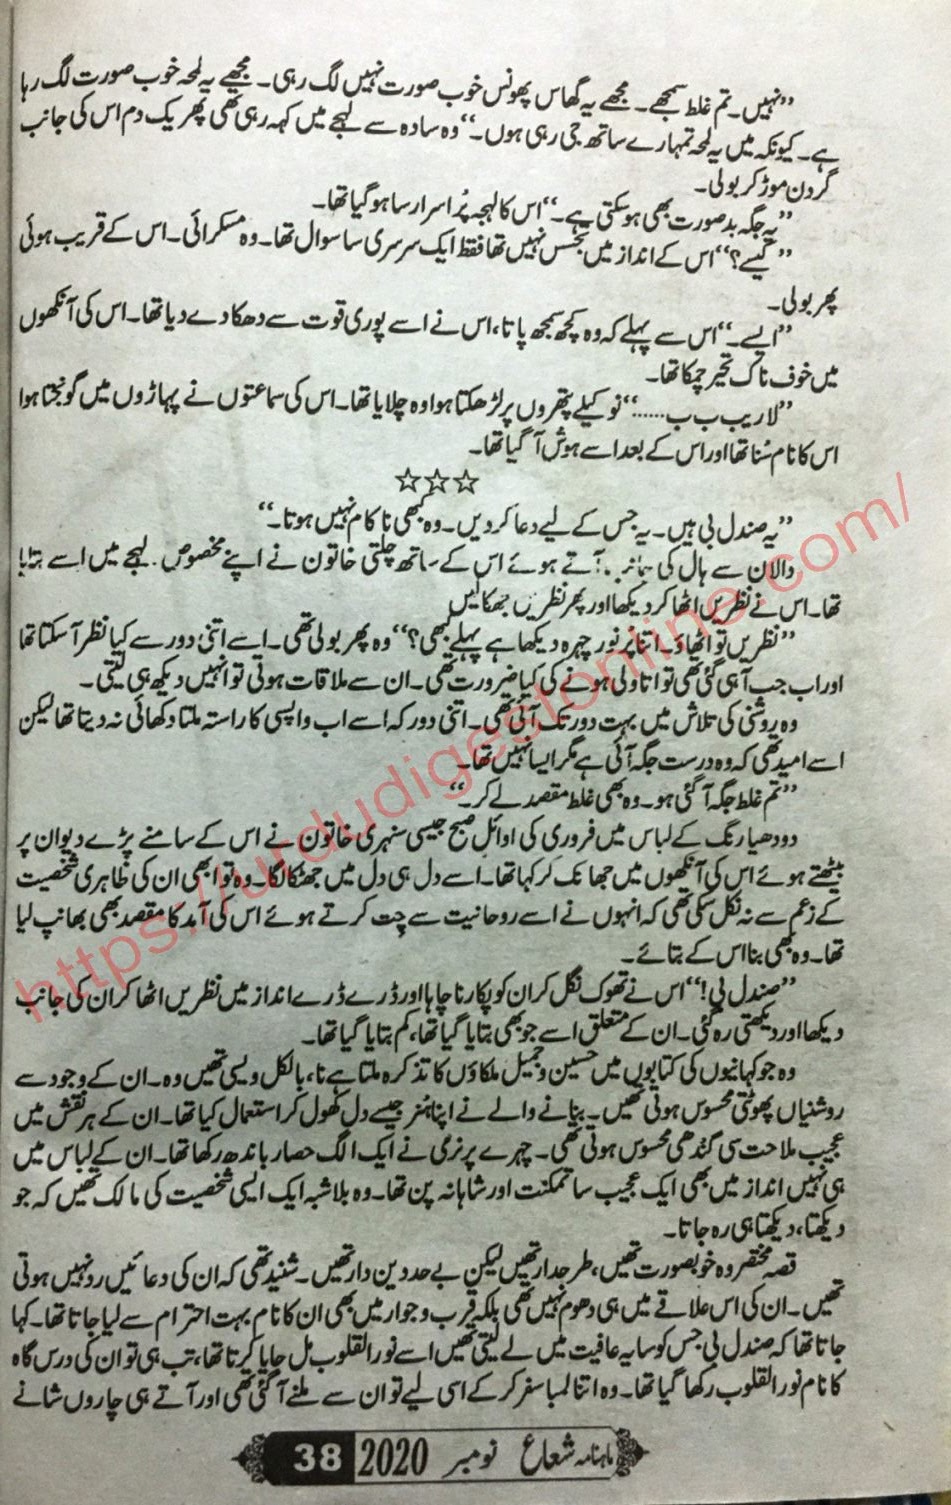 ”نہیں۔ تم غلط سمجھے۔ مجھے یہ گھاس پھونس خوب صورت نہیں لگ رہی۔ مجھے یہ لمحہ خوب صورت لگ رہا
ہے۔ کیونکہ میں یہ لمحہ تمہارے ساتھ جی رہی ہوں۔“ وہ سادہ سے لہجے میں کہہ رہی تھی پھر یک دم اس کی جانب
گردن موڑ کر بولی۔
”یہ جگہ بدصورت بھی ہو سکتی ہے۔“ اس کا لہجہ پُر اسرار سا ہو گیا تھا۔
”کیسے؟“ اس کے انداز میں تجسس نہیں تھا فقط ایک سرسری سا سوال تھا۔ وہ مسکرائی۔ اس کے قریب ہوئی
پھر بولی۔
”ایسے۔“ اس سے پہلے کہ وہ کچھ سمجھ پاتا، اس نے اسے پوری قوت سے دھکا دے دیا تھا۔ اس کی آنکھوں
میں خوف ناک تحیر چمکا تھا۔
”لاریب ب ب......“ نوکیلے پتھروں پر لڑھکتا ہوا وہ چلایا تھا۔ اس کی سماعتوں نے پہاڑوں میں گونجتا ہوا
اس کا نام سُنا تھا اور اس کے بعد اسے ہوش آ گیا تھا۔
☆☆☆
”یہ صندل بی ہیں۔ یہ جس کے لیے دعا کر دیں۔ وہ کبھی ناکام نہیں ہوتا۔“
دالان سے ہال کی جانب آتے ہوئے اس کے ساتھ چلتی خاتون نے اپنے مخصوص لہجے میں اسے بتایا
تھا۔ اس نے نظریں اٹھا کر دیکھا اور پھر نظریں جھکا لیں
”نظریں تو اٹھاؤ۔ اتنا پُر نور چہرہ دیکھا ہے پہلے کبھی؟“ وہ پھر بولی تھی۔ اسے اتنی دور سے کیا نظر آ سکتا تھا
اور اب جب آ ہی گئی تھی تو اتاولی ہونے کی کیا ضرورت تھی۔ ان سے ملاقات ہوتی تو انہیں دیکھ ہی لیتی۔
وہ روشنی کی تلاش میں بہت دور تک آئی تھی۔ اتنی دور کہ اسے اب واپسی کا راستہ ملتا دکھائی نہ دیتا تھا لیکن
اسے امید تھی کہ وہ درست جگہ آئی ہے مگر ایسا نہیں تھا۔
”تم غلط جگہ آ گئی ہو۔ وہ بھی غلط مقصد لے کر۔“
دودھیا رنگ کے لباس میں فروری کی اوائل صبح جیسی سنہری خاتون نے اس کے سامنے پڑے دیوان پر
بیٹھتے ہوئے اس کی آنکھوں میں جھانک کر کہا تھا۔ اسے دل ہی دل میں جھٹکا لگا۔ وہ تو ابھی ان کی ظاہری شخصیت
کے زعم سے نہ نکل سکی تھی کہ انہوں نے اسے روحانیت سے چت کرتے ہوئے اس کی آمد کا مقصد بھی بھانپ لیا
تھا۔ وہ بھی بنا اس کے بتائے۔
”صندل بی!“ اس نے تھوک نگل کر ان کو پکارنا چاہا اور ڈرے ڈرے انداز میں نظریں اٹھا کر ان کی جانب
دیکھا اور دیکھتی رہ گئی۔ ان کے متعلق اسے جو بھی بتایا گیا تھا، کم بتایا گیا تھا۔
وہ جو کہانیوں کی کتابوں میں حسین و جمیل ملکاؤں کا تذکرہ ملتا ہے نا، بالکل ویسی تھیں وہ۔ ان کے وجود سے
روشنیاں پھوٹتی محسوس ہوتی تھیں۔ بنانے والے نے اپنا ہنر جیسے دل کھول کر استعمال کیا تھا۔ ان کے ہر نقش میں
عجیب ملاحت سی گندھی محسوس ہوتی تھی۔ چہرے پر نرمی نے ایک الگ حصار باندھ رکھا تھا۔ ان کے لباس میں
ہی نہیں انداز میں بھی ایک عجیب سا تمکنت اور شاہانہ پن تھا۔ وہ بلاشبہ ایک ایسی شخصیت کی مالک تھیں کہ جو
دیکھتا، دیکھتا ہی رہ جاتا۔
قصہ مختصر وہ خوبصورت تھیں، طرحدار تھیں لیکن بے حد دین دار تھیں۔ شنید تھی کہ ان کی دعائیں رد نہیں ہوتی
تھیں۔ ان کی اس علاقے میں ہی دھوم نہیں تھی بلکہ قرب و جوار میں بھی ان کا نام بہت احترام سے لیا جاتا تھا۔ کہا
جاتا تھا کہ صندل بی جس کو سایہ عافیت میں لے لیتی تھیں اسے نور القلوب مل جایا کرتا تھا، تب ہی تو ان کی درس گاہ
کا نام نور القلوب رکھا گیا تھا۔ وہ اتنا لمبا سفر کر کے اسی لیے تو ان سے ملنے آ گئی تھی اور آتے ہی چاروں شانے
ماہنامہ شعاع نومبر 2020 38
https://urdudigestonline.com/